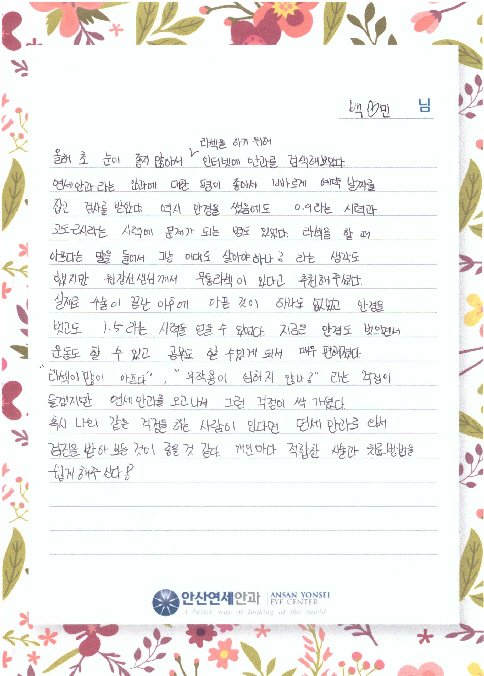 백♡민 님
라섹을 하기 위해
올해 초 눈이 좋지 않아서 ∨ 인터넷에 안과를 검색해보았다
연세안과 라는 안과에 대한 평이 좋아서 바르게 예약 날짜를
잡고 검사를 받았다 역시 안경을 썼음에도 0.9라는 시력과
고도근시라는 시력에 문제가 되는 병도 있었다. 라섹을 할 때
아프다는 말을 들어서 그냥 이대로 살아야하나? 라는 생각도
했지만 원장선생님께서 무통라섹이 있다고 추천해주셨다.
실제로 수술이 끝난 이후에 아픈 것이 하나도 없었고 안경을
벗고도 1.5라는 시력을 얻을 수 있었다. 지금은 안경도 벗으면서
운동도 할 수 있고 공부도 할 수 있게 되서 매우 편해졌다.
"라섹이 많이 아프다", "부작용이 심하지 않나?" 라는 걱정이
들었지만 연세안과를 오고나서 그런 걱정이 싹 가셨다.
혹시 나와 같은 걱정을 하는 사람이 있다면 연세안과로 와서
검진을 받아 보는 것이 좋을 것 같다. 개인마다 적합한 시술과 치료방법을
쉽게 해주신다!
안산연세안과 ANSAN YONSEI
EYE CENTER
A better way of looking at the world